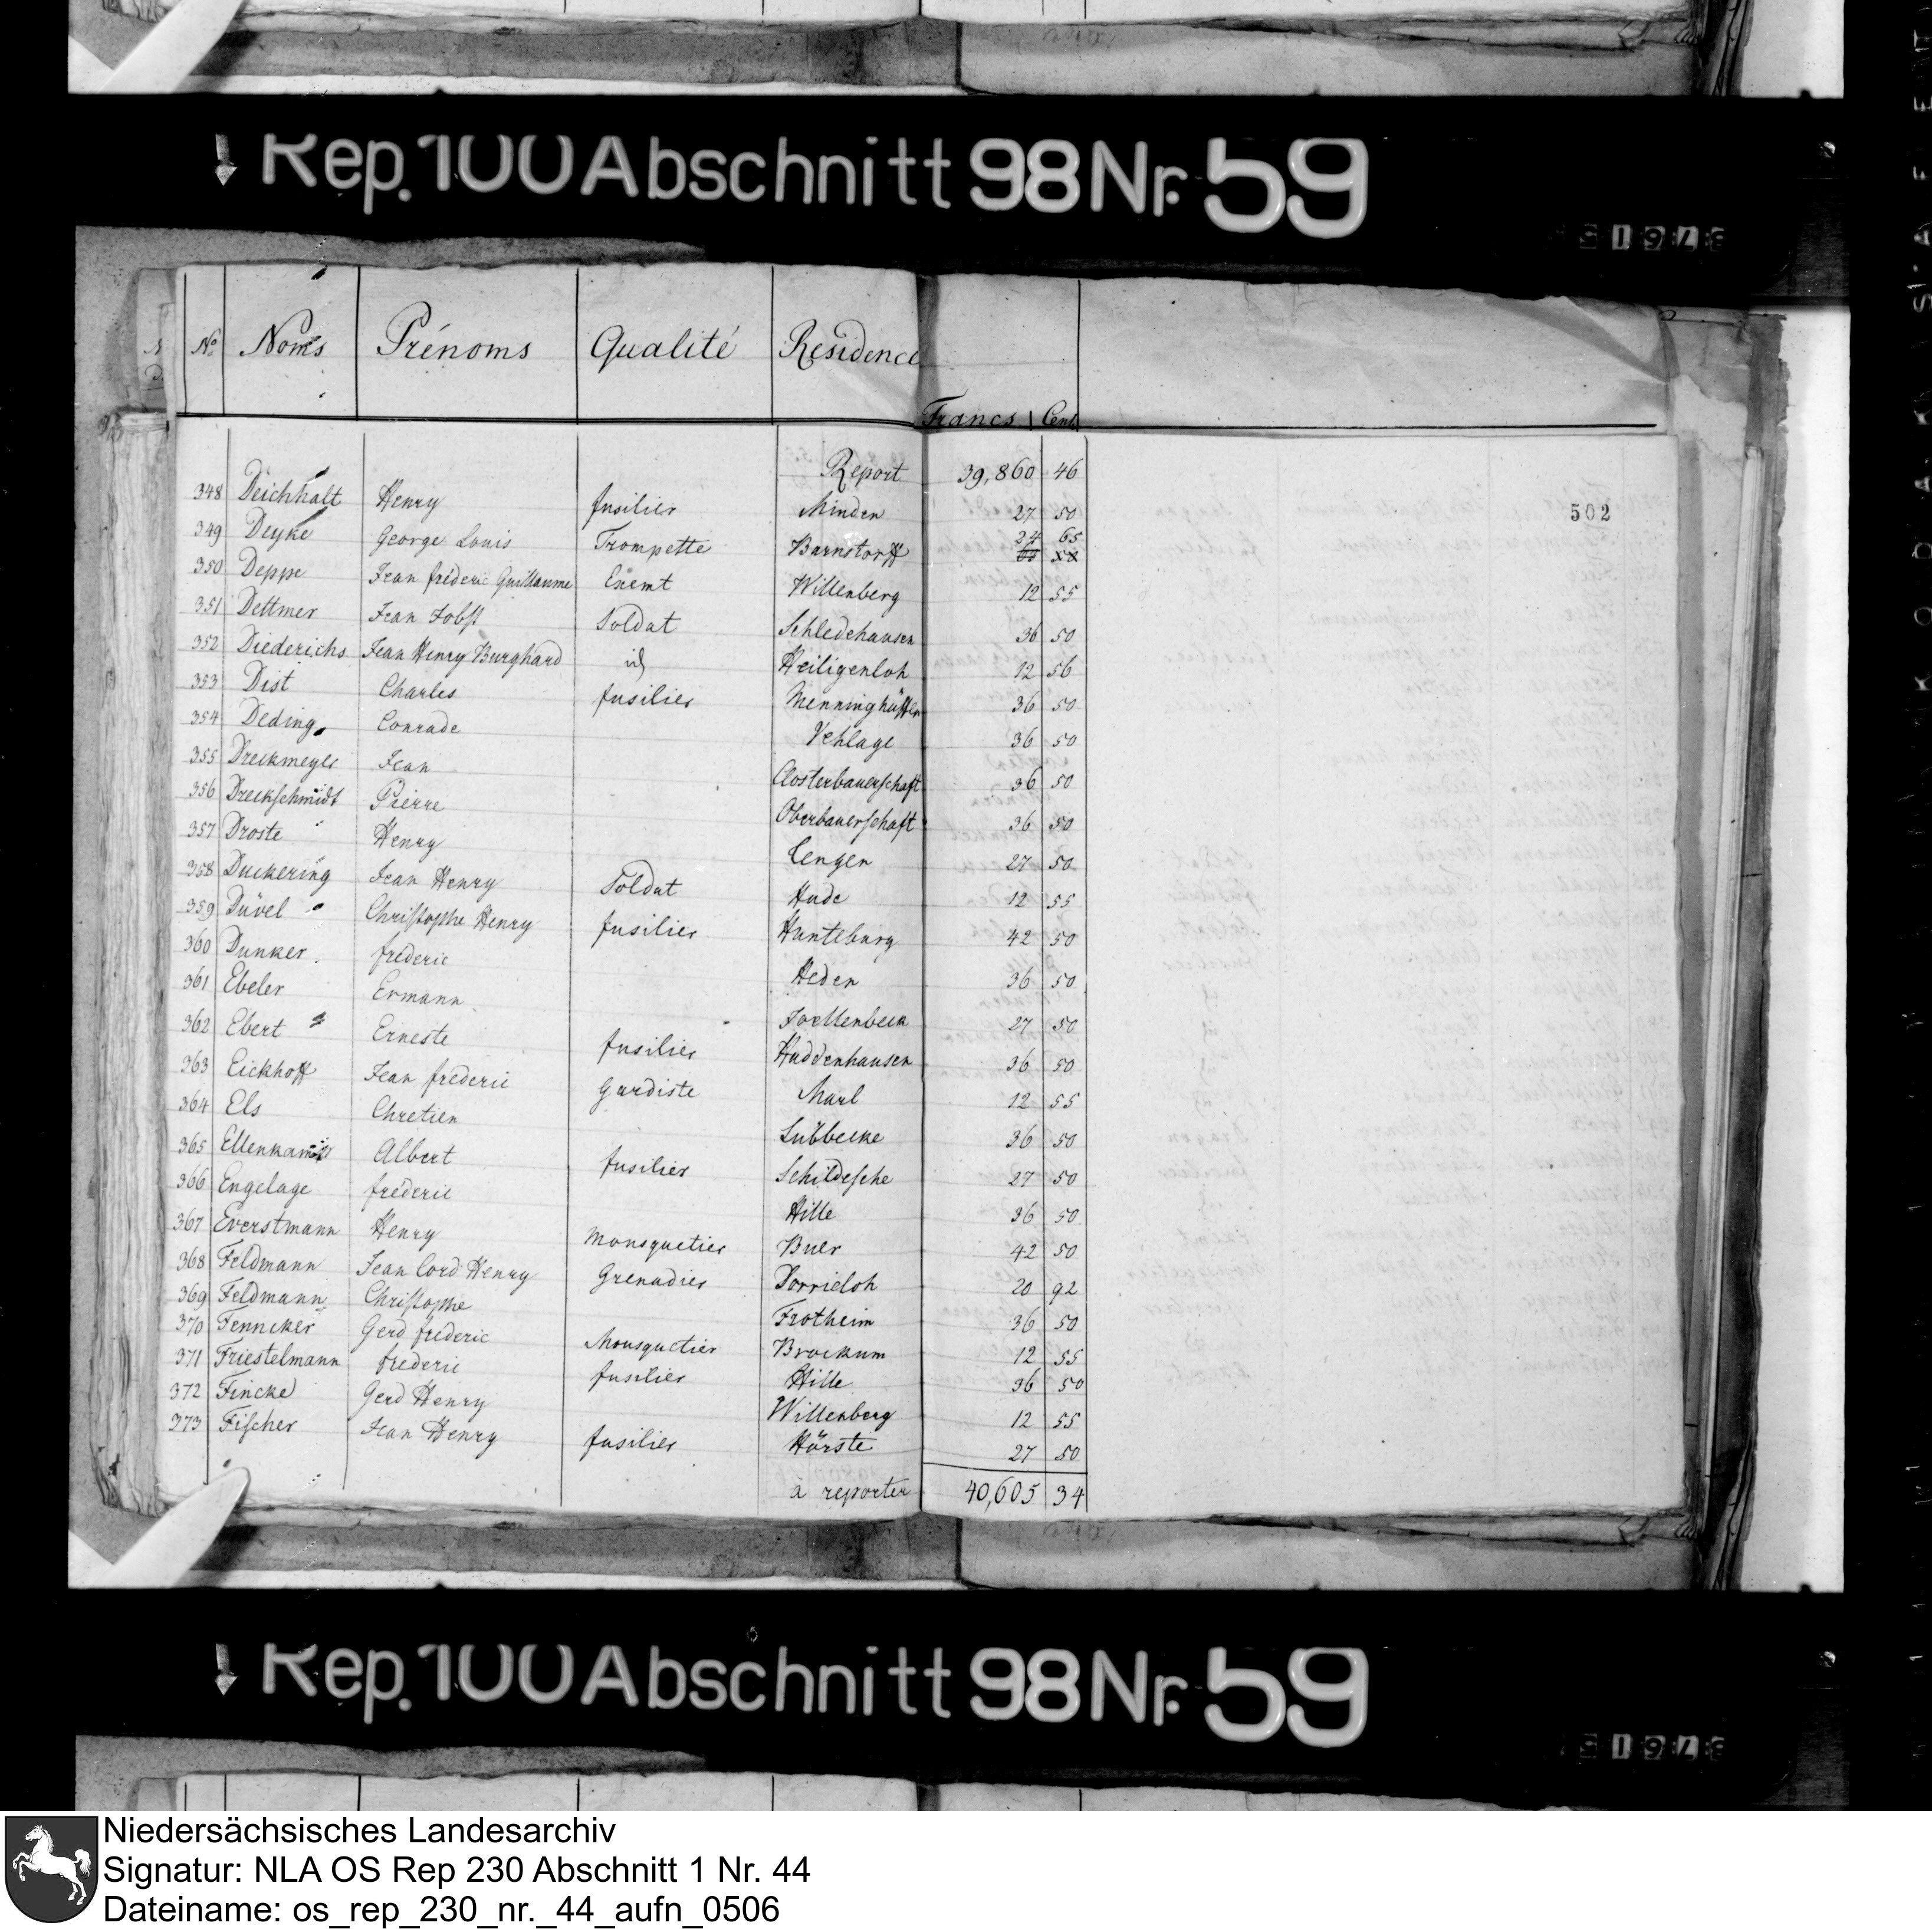 Rep. 100 Abschnitt 98 Nr. 59
No Noms Prénoms Qualité Residence
Francs Cent
Report 39,860 46
502
348 Deichhalt Henry fusilier Minden 27 50
349 Deyke George Louis Trompette Barnstorff 24 65
350 Deppe Jean frédéric Guillaume Exemt Willenberg 12 55
351 Dettmer Jean Jobst Soldat Schledehausen 36 50
352 Diederichs Jean Henry Burghard id Heiligenloh 12 56
353 Dist Charles fusilier Menninghüffen 36 50
354 Deding Conrade Vehlage 36 50
355 Dreckmeyer Jean Closterbauerschaft 36 50
356 Dreckschmidt Pierre Oberbauerschaft 36 50
357 Droste Henry Lengen 27 50
358 Duckering Jean Henry Soldat Hude 12 55
359 Düvel Christophe Henry fusilier Hunteburg 42 50
360 Dunker frederic Heden 36 50
361 Ebeler Ermann Joellenbeck 27 50
362 Ebert Erneste fusilier Huddenhausen 36 50
363 Eickhoff Jean frederic Gardiste Marl 12 55
364 Els Chretien Lübbecke 36 50
365 Albert fusilier Schildesche 27 50
366 Engelage fréderic Hille 36 50
367 Everstmann Henry Mousquetier Buer 42 50
368 Feldmann Jean Cord Henry Grenadier Dorrieloh 20 92
369 Feldmann Christophe Frotheim 36 50
370 Fenneker Gerd frederic Mousquetier Brockum 12 55
371 Friestelmann frederic fusilier Hille 36 50
372 Fincke Gerd Henry Willenberg 12 55
373 Fischer Jean Henry fusilier Hörste 27 50
a reporter 40,605 34
Rep. 100 Abschnitt 98 Nr. 59
Niedersächsisches Landesarchiv
Signatur: NLA OS Rep 230 Abschnitt 1 Nr. 44
Dateiname: os_rep_230_nr._44_aufn_0506